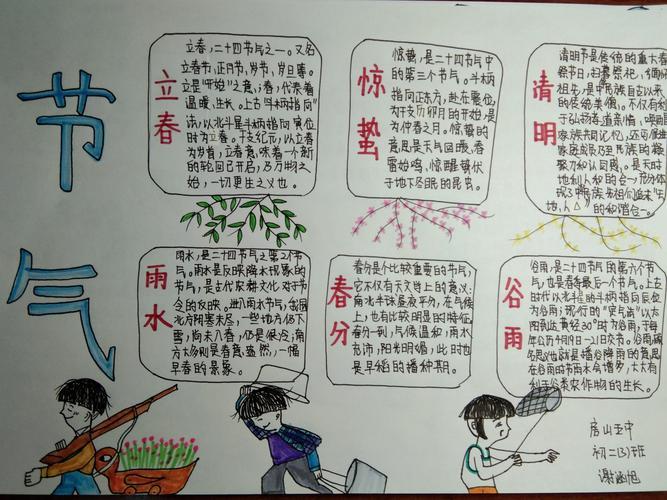 节气
立春
立春,二十四节气之一。又名
立春节、正月节、岁节、岁旦等。
立是"开始"之意;春,代表着
温暖、生长。上古"斗柄指向"
法,以北斗星斗柄指向寅位
时为立春。干支纪元,以立春
为岁首,立春意味着一个新
的轮回已开启,乃万物之
始,一切更生之义也。
惊蛰
惊蛰,是二十四节气中
的第三个节气。斗柄
指向正东方,
为干支历卯月的开始,是
为仲春之月。惊蛰的
意思是天气回暖,春
雷始鸣,惊醒蛰伏
于地下冬眠的昆虫。
清明
清明节是传统的重大春
祭节日,扫墓祭祀、缅怀
祖先,是中华民族自古以来
的优良传统。不仅有利
于弘扬孝道亲情、唤醒
家族共同记忆,还可促进
家族成员乃至民族的凝
聚力和认同感。是天时
地利人和的合一,充分体
现了中华民族先祖们追求"天、
地、人"的和谐合一。
雨水
雨水,是二十四节气之第2个节
气。雨水是反映降水现象的
节气,是古代农耕文化对于节
令的反映。进入雨水节气,我国
北方阴寒未尽,一些地方仍下
雪,尚未入春,仍是很冷;南
方大多则是春意盎然,一幅
早春的景象。
春分
春分是个比较重要的节气,
它不仅有天文学上的意义:
南北半球昼夜平分,在气候
上,也有比较明显的特征,
春分一到,气候温和,雨水
充沛,阳光明媚,此时也
是早稻的播种期。
谷雨
谷雨,是二十四节气的第六个节
气,也是春季最后一个节气。上古
时代以北斗星的斗柄指向辰位
为谷雨;现行的"定气法"以太
阳到达黄经30°时为谷雨,于每
年公历4月19日~21日交节。谷雨,顾
名思义也就是播谷降雨的意思,
在谷雨时节雨水会增多,大大有
利于谷类农作物的生长。
房山五中
初二(3)班
谢涵旭